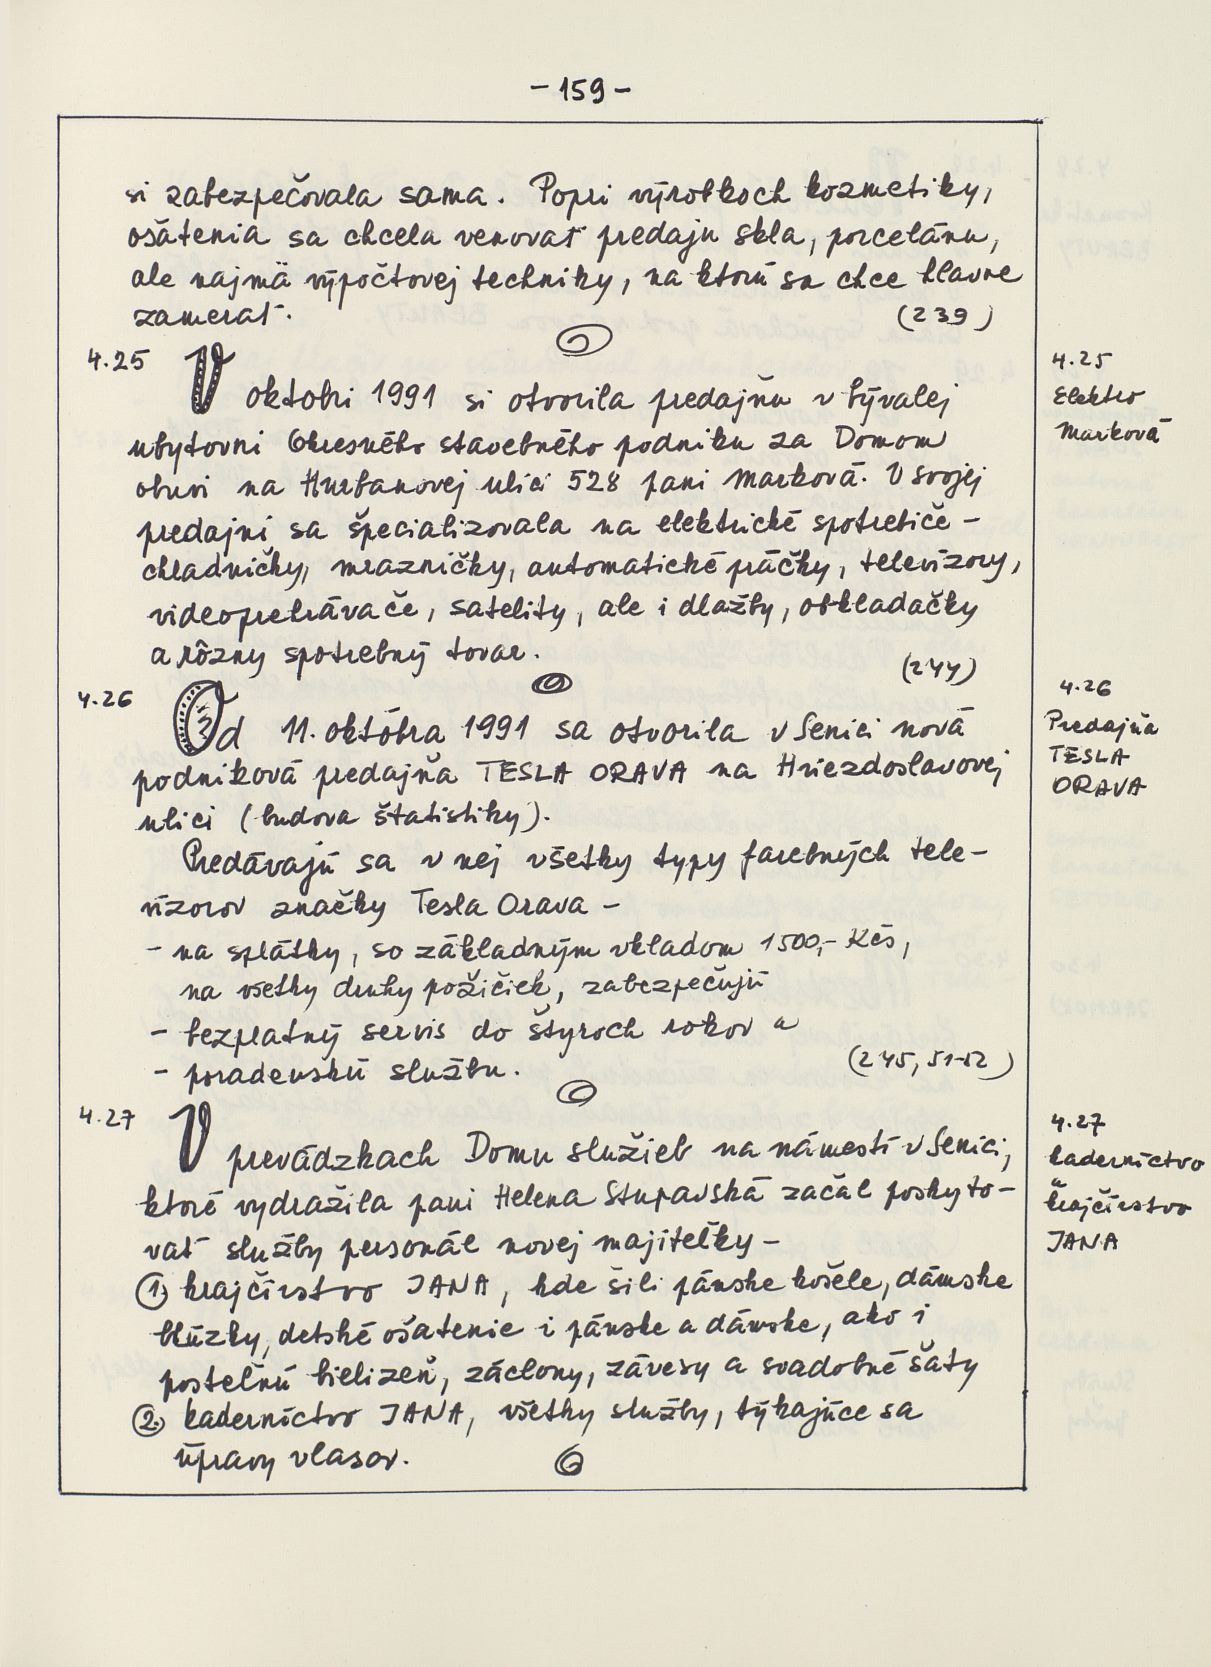 - 159 -
si zabezpečovala sama. Popri výrobkoch kozmetiky,
ošatenia sa chcela venovať predaju skla, porcelánu,
ale najmä výpočtovej techniky, na ktorú sa chce hlavne
zamerať. (239)
4.25 V októbri 1991 si otvorila predajňu v bývalej
ubytovni Okresného stavebného podniku za Domom
obuvi na Hurbanovej ulici 528 pani Marková. V svojej
predajni sa špecializovala na elektrické spotrebiče -
chladničky, mrazničky, automatické práčky, televízory,
videoprehrávače, satelity, ale i dlažby, obkladačky
a rôzny spotrebný tovar. (244)
4.25
Elektro
Marková
4.26 Od 11. októbra 1991 sa otvorila v Senici nová
podniková predajňa TESLA ORAVA na Hviezdoslavovej
ulici (budova štatistiky).
Predávajú sa v nej všetky typy farebných tele-
vízorov značky Tesla Orava -
- na splátky, so základným vkladom 1500,- Kčs,
na všetky druhy požičiek, zabezpečujú
- bezplatný servis do štyroch rokov a
- poradenskú službu. (245, 51-52)
4.26
Predajňa
TESLA
ORAVA
4.27 V prevádzkach Domu služieb na námestí v Senici,
ktoré vydražila pani Helena Stupavská začal poskyto-
vať služby personál novej majiteľky -
1. krajčírstvo JANA, kde šili pánske košele, dámske
blúzky, detské ošatenie i pánske a dámske, ako i
posteľnú bielizeň, záclony, závesy a svadobné šaty
2. kaderníctvo JANA, všetky služby, týkajúce sa
úpravy vlasov.
4.27
kaderníctvo
a
krajčírstvo
JANA